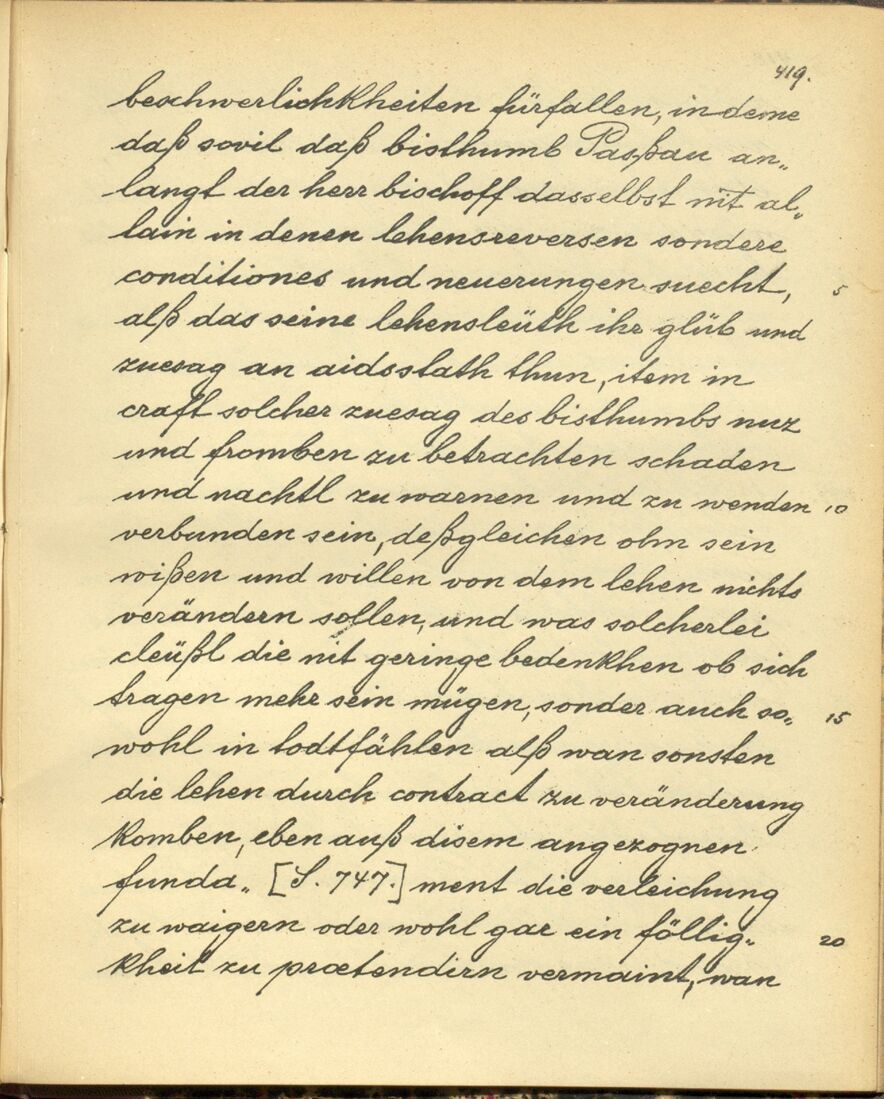 419.
beschwerlichkheiten fürfallen, in deme
daß sovil daß bisthumb Paßßau an„
langt der herr bischoff dasselbst nit al„
lain in denen lehensreversen sondere
conditiones und neuerungen suecht, 5
alß das seine lehensleüth ihr glüb und
zuesag an aidsstath thun, item in
craft solcher zuesag des bisthumbs nuz
und fromben zu betrachten schaden
und nachtl zu warnen und zu wenden 10
verbunden sein, deßgleichen ohn sein
wißen und willen von dem lehen nichts
verändern sollen, und was solcherlei
cleüßl die nit geringe bedenkhen ob sich
tragen mehr sein mügen, sonder auch so„ 15
wohl in todtfählen alß wan sonsten
die lehen durch contract zu veränderung
komben, eben auß disem angezognen
funda„ [S. 747.] ment die verleichung
zu waigern oder wohl gar ein föllig„ 20
kheit zu prætendirn vermaint, wan